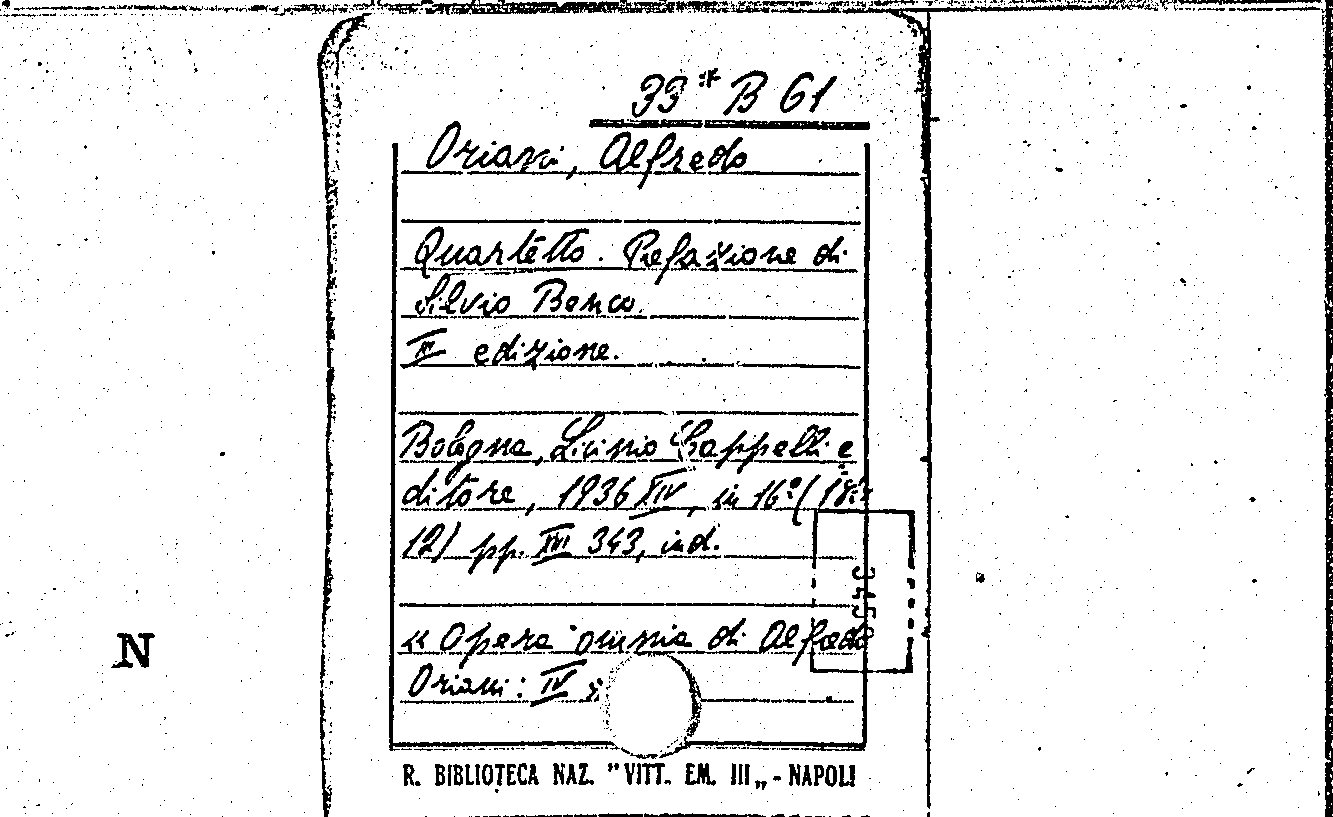 33* B 61
Oriani, Alfredo
Quartetto. Prefazione di
Silvio Benco.
edizione.
Bologna, Licinio Cappelli e
ditore, 1936 XIV, in 16º (18x
12) pp. XVI 343, ind.
« Opera omnia di Alfredo
Oriani: IV
N
R. BIBLIOTECA NAZ. "VITT. EM. III„ - NAPOLI